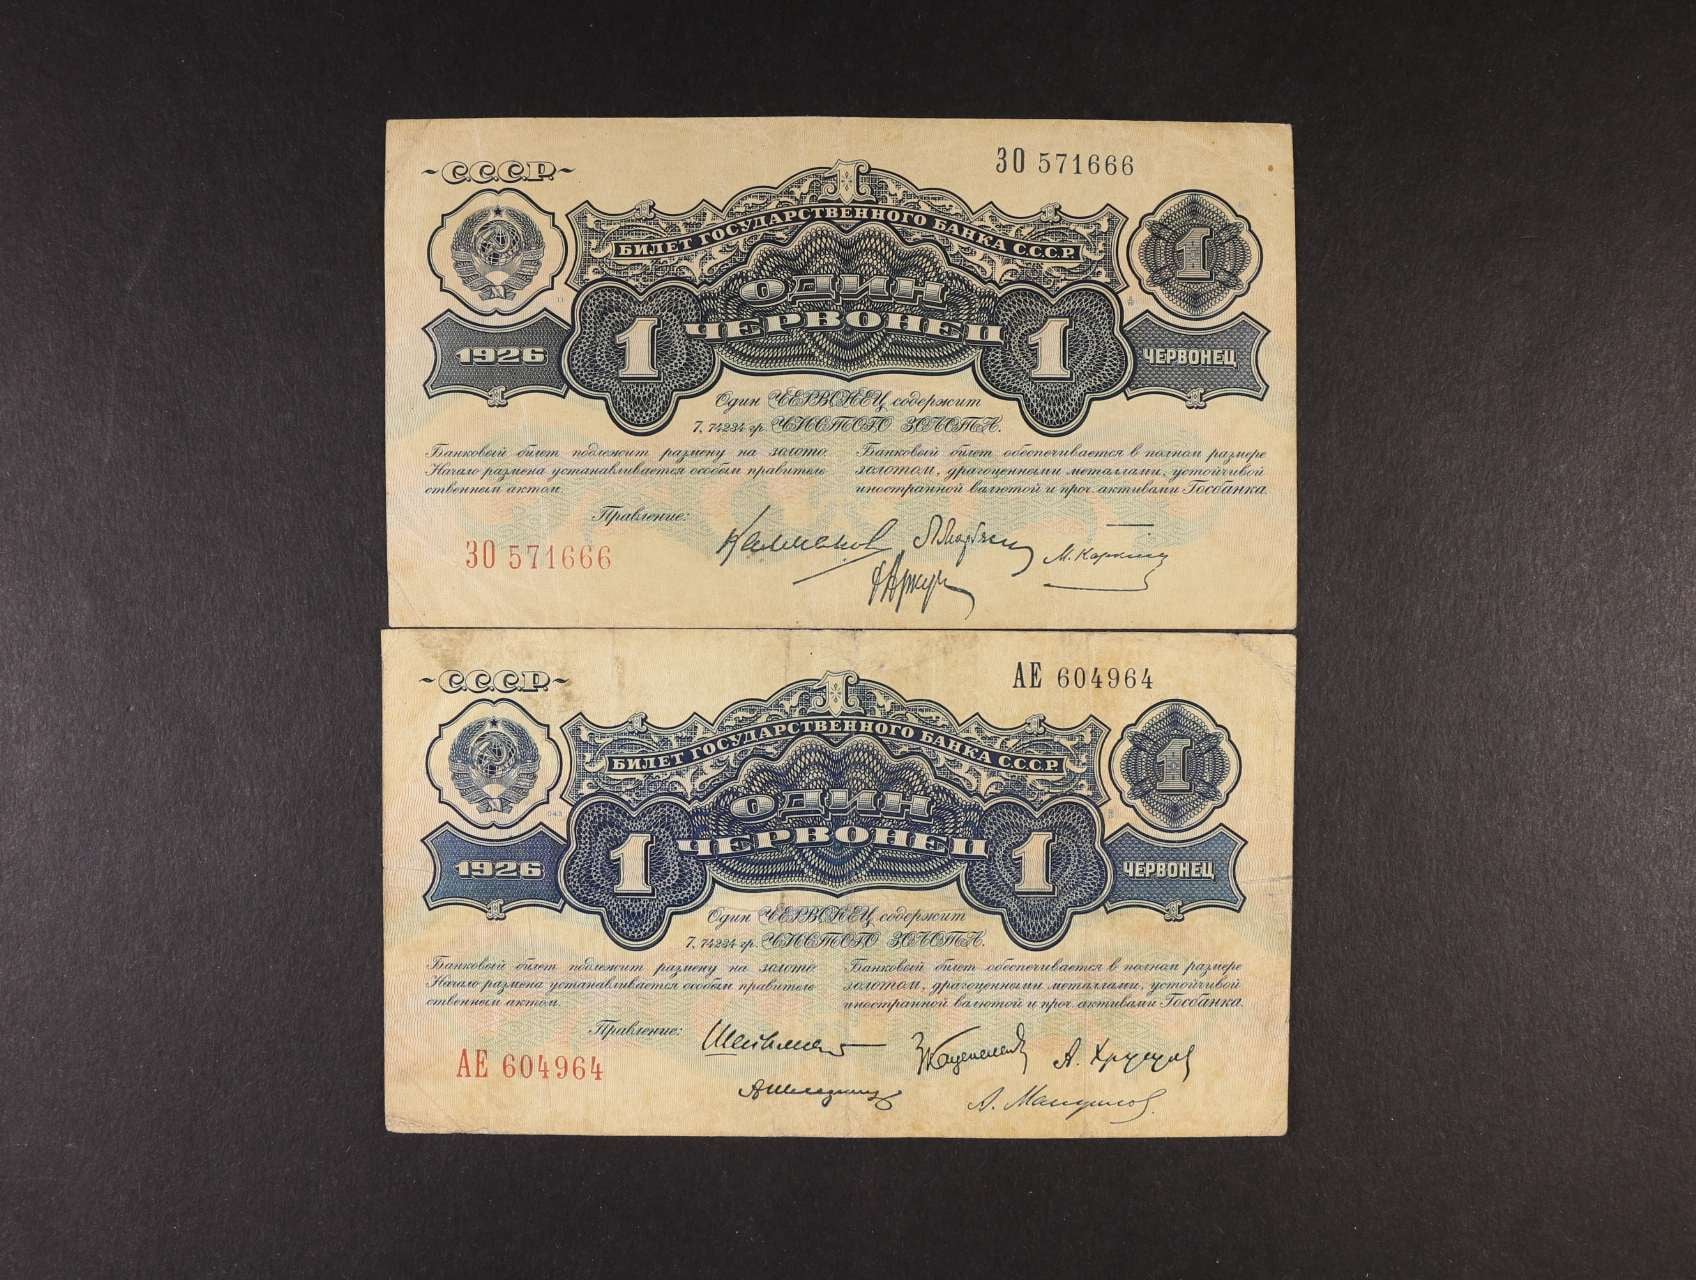 С.С.С.Р.
ЗО 571666
1
БИЛЕТ ГОСУДАРСТВЕННОГО БАНКА С.С.С.Р.
1 1
1
ОДИН
ЧЕРВОНЕЦ
1 1
1926
ЧЕРВОНЕЦ
1 1
Один ЧЕРВОНЕЦ содержит
7, 74234 гр. ЧИСТОГО ЗОЛОТА.
Банковый билет подлежит размену на золото.
Начало размена устанавливается особым правитель
ственным актом.
Банковый билет обеспечивается в полном размере
золотом, драгоценными металлами, устойчивой
иностранной валютой и проч. активами Госбанка.
Правление:
ЗО 571666
С.С.С.Р.
АЕ 604964
1
БИЛЕТ ГОСУДАРСТВЕННОГО БАНКА С.С.С.Р.
1 1
1
ОДИН
ЧЕРВОНЕЦ
1 1
1926
ЧЕРВОНЕЦ
1 1
Один ЧЕРВОНЕЦ содержит
7, 74234 гр. ЧИСТОГО ЗОЛОТА.
Банковый билет подлежит размену на золото.
Начало размена устанавливается особым правитель
ственным актом.
Банковый билет обеспечивается в полном размере
золотом, драгоценными металлами, устойчивой
иностранной валютой и проч. активами Госбанка.
Правление:
АЕ 604964